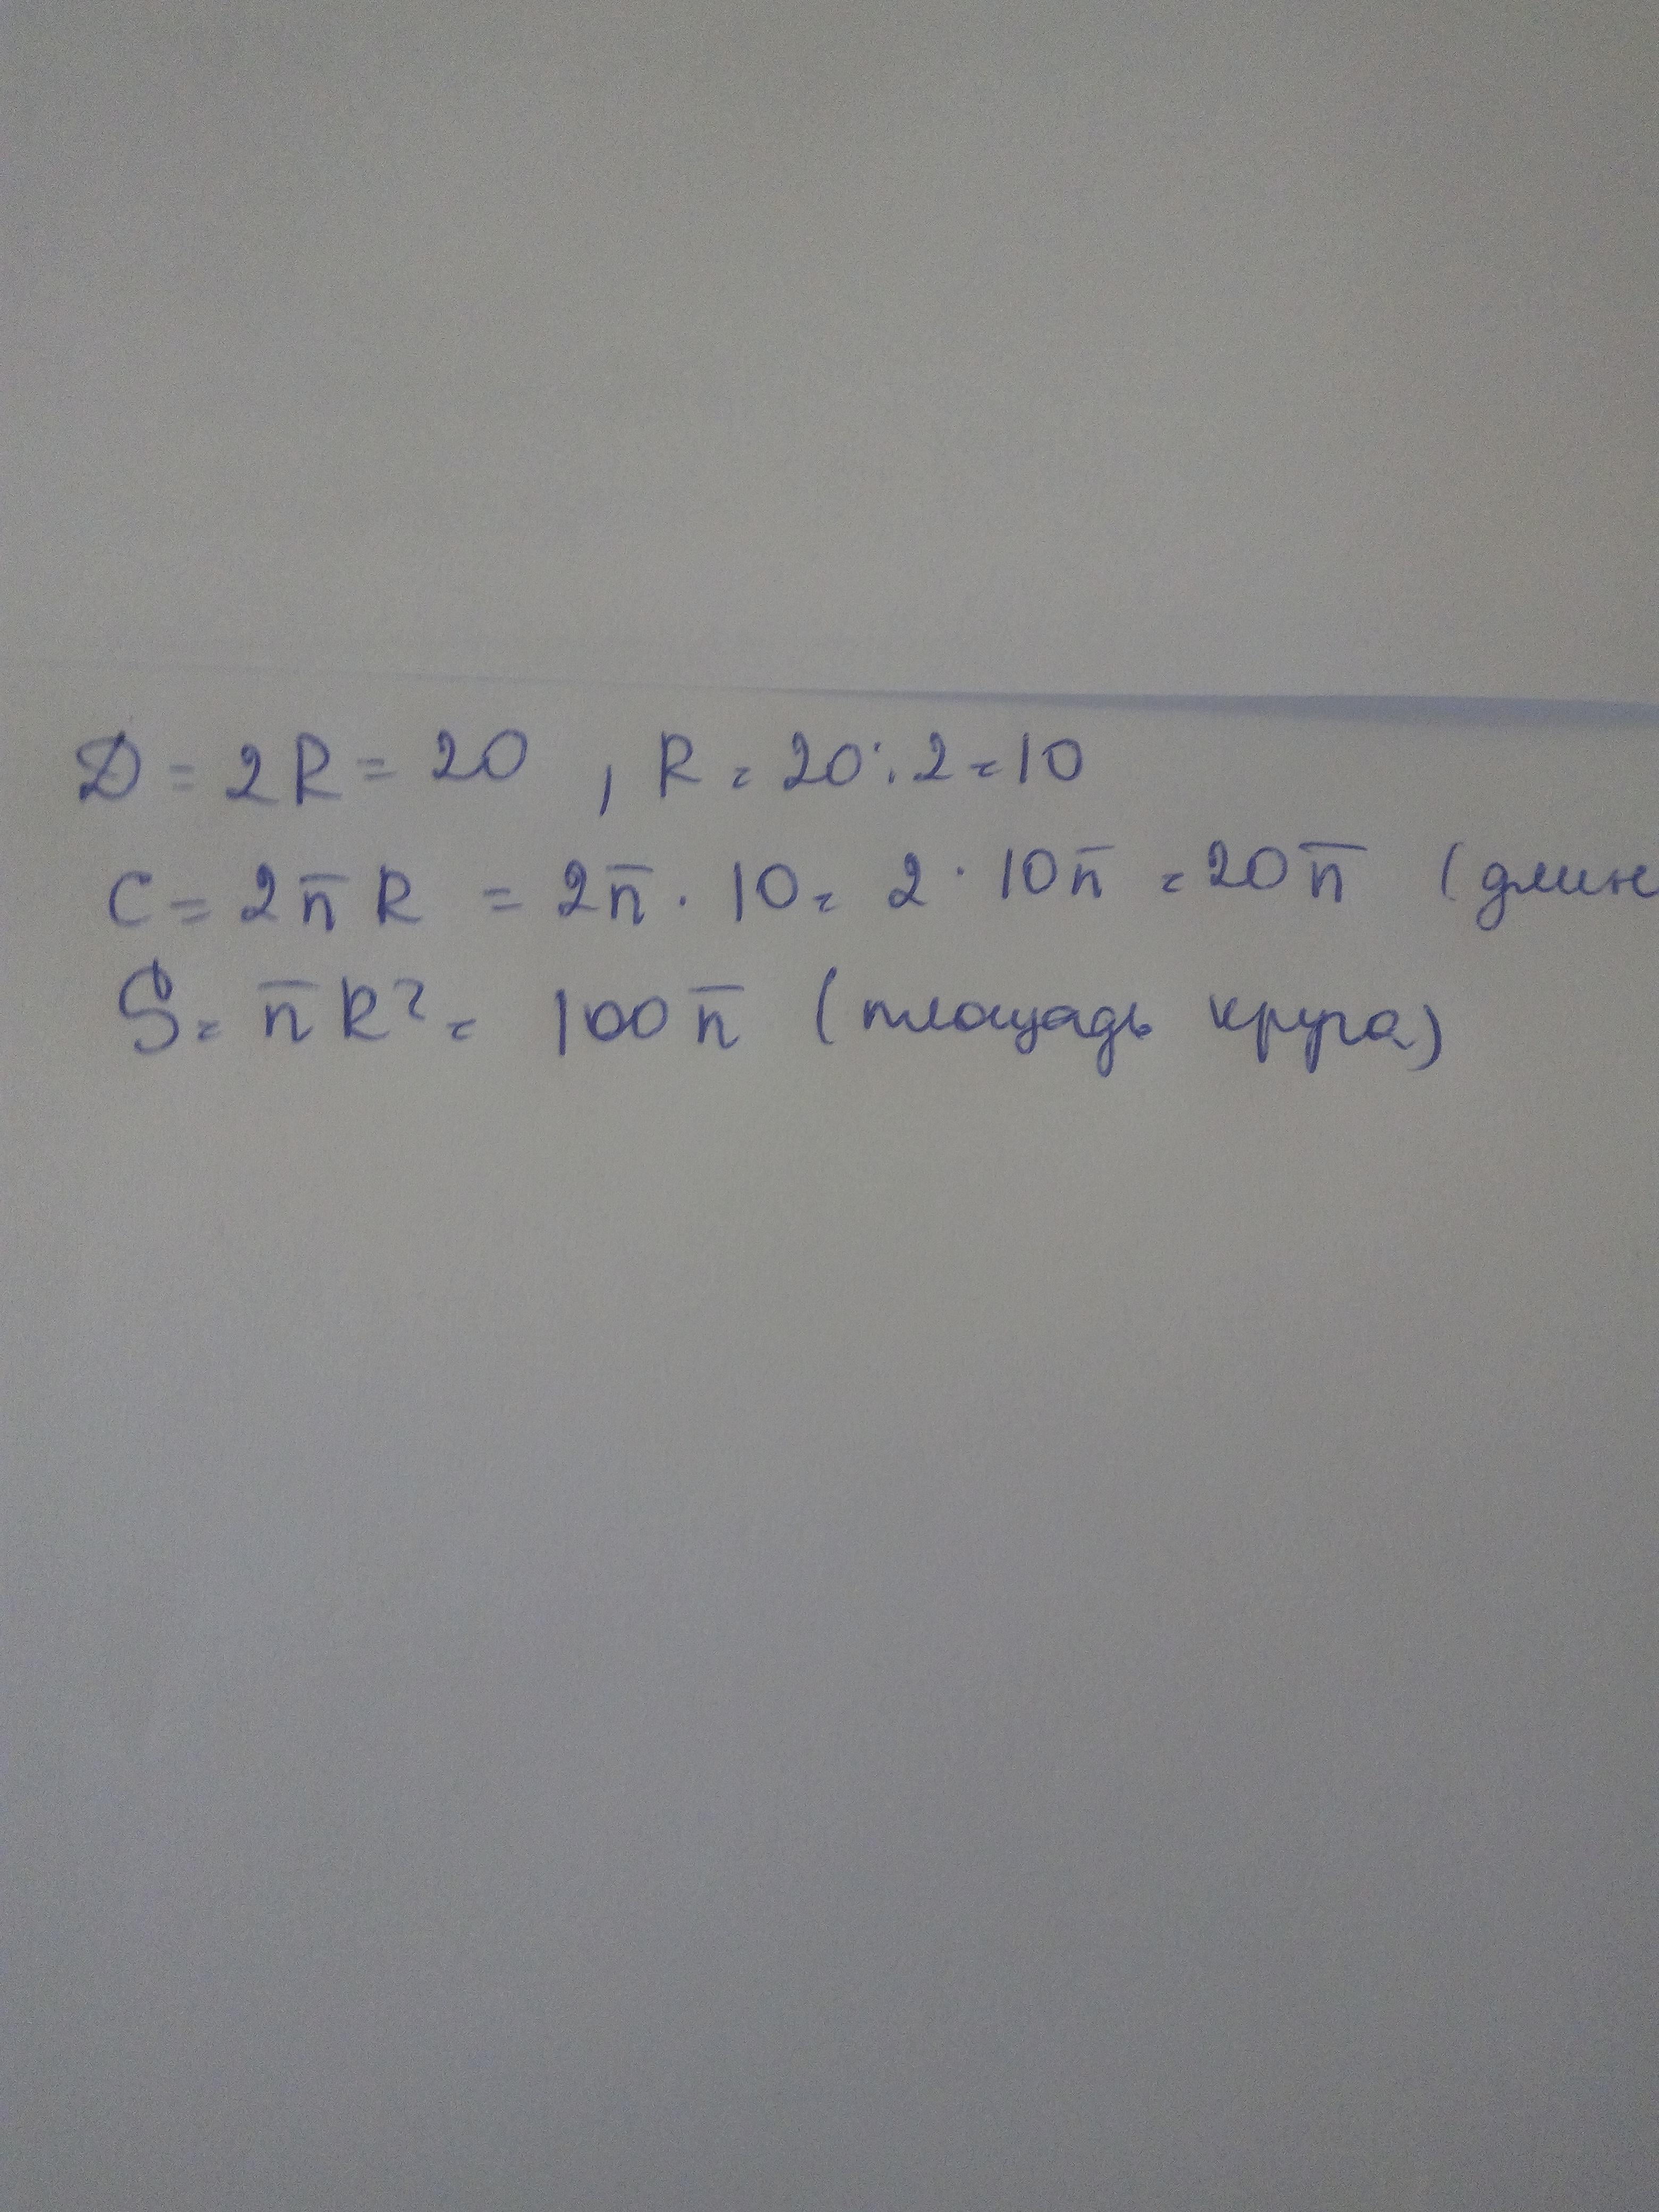 D = 2R = 20 , R = 20 : 2 = 10
C = 2π R = 2π · 10 = 2 · 10π = 20π (длин
S = πR² = 100π (площадь круга)